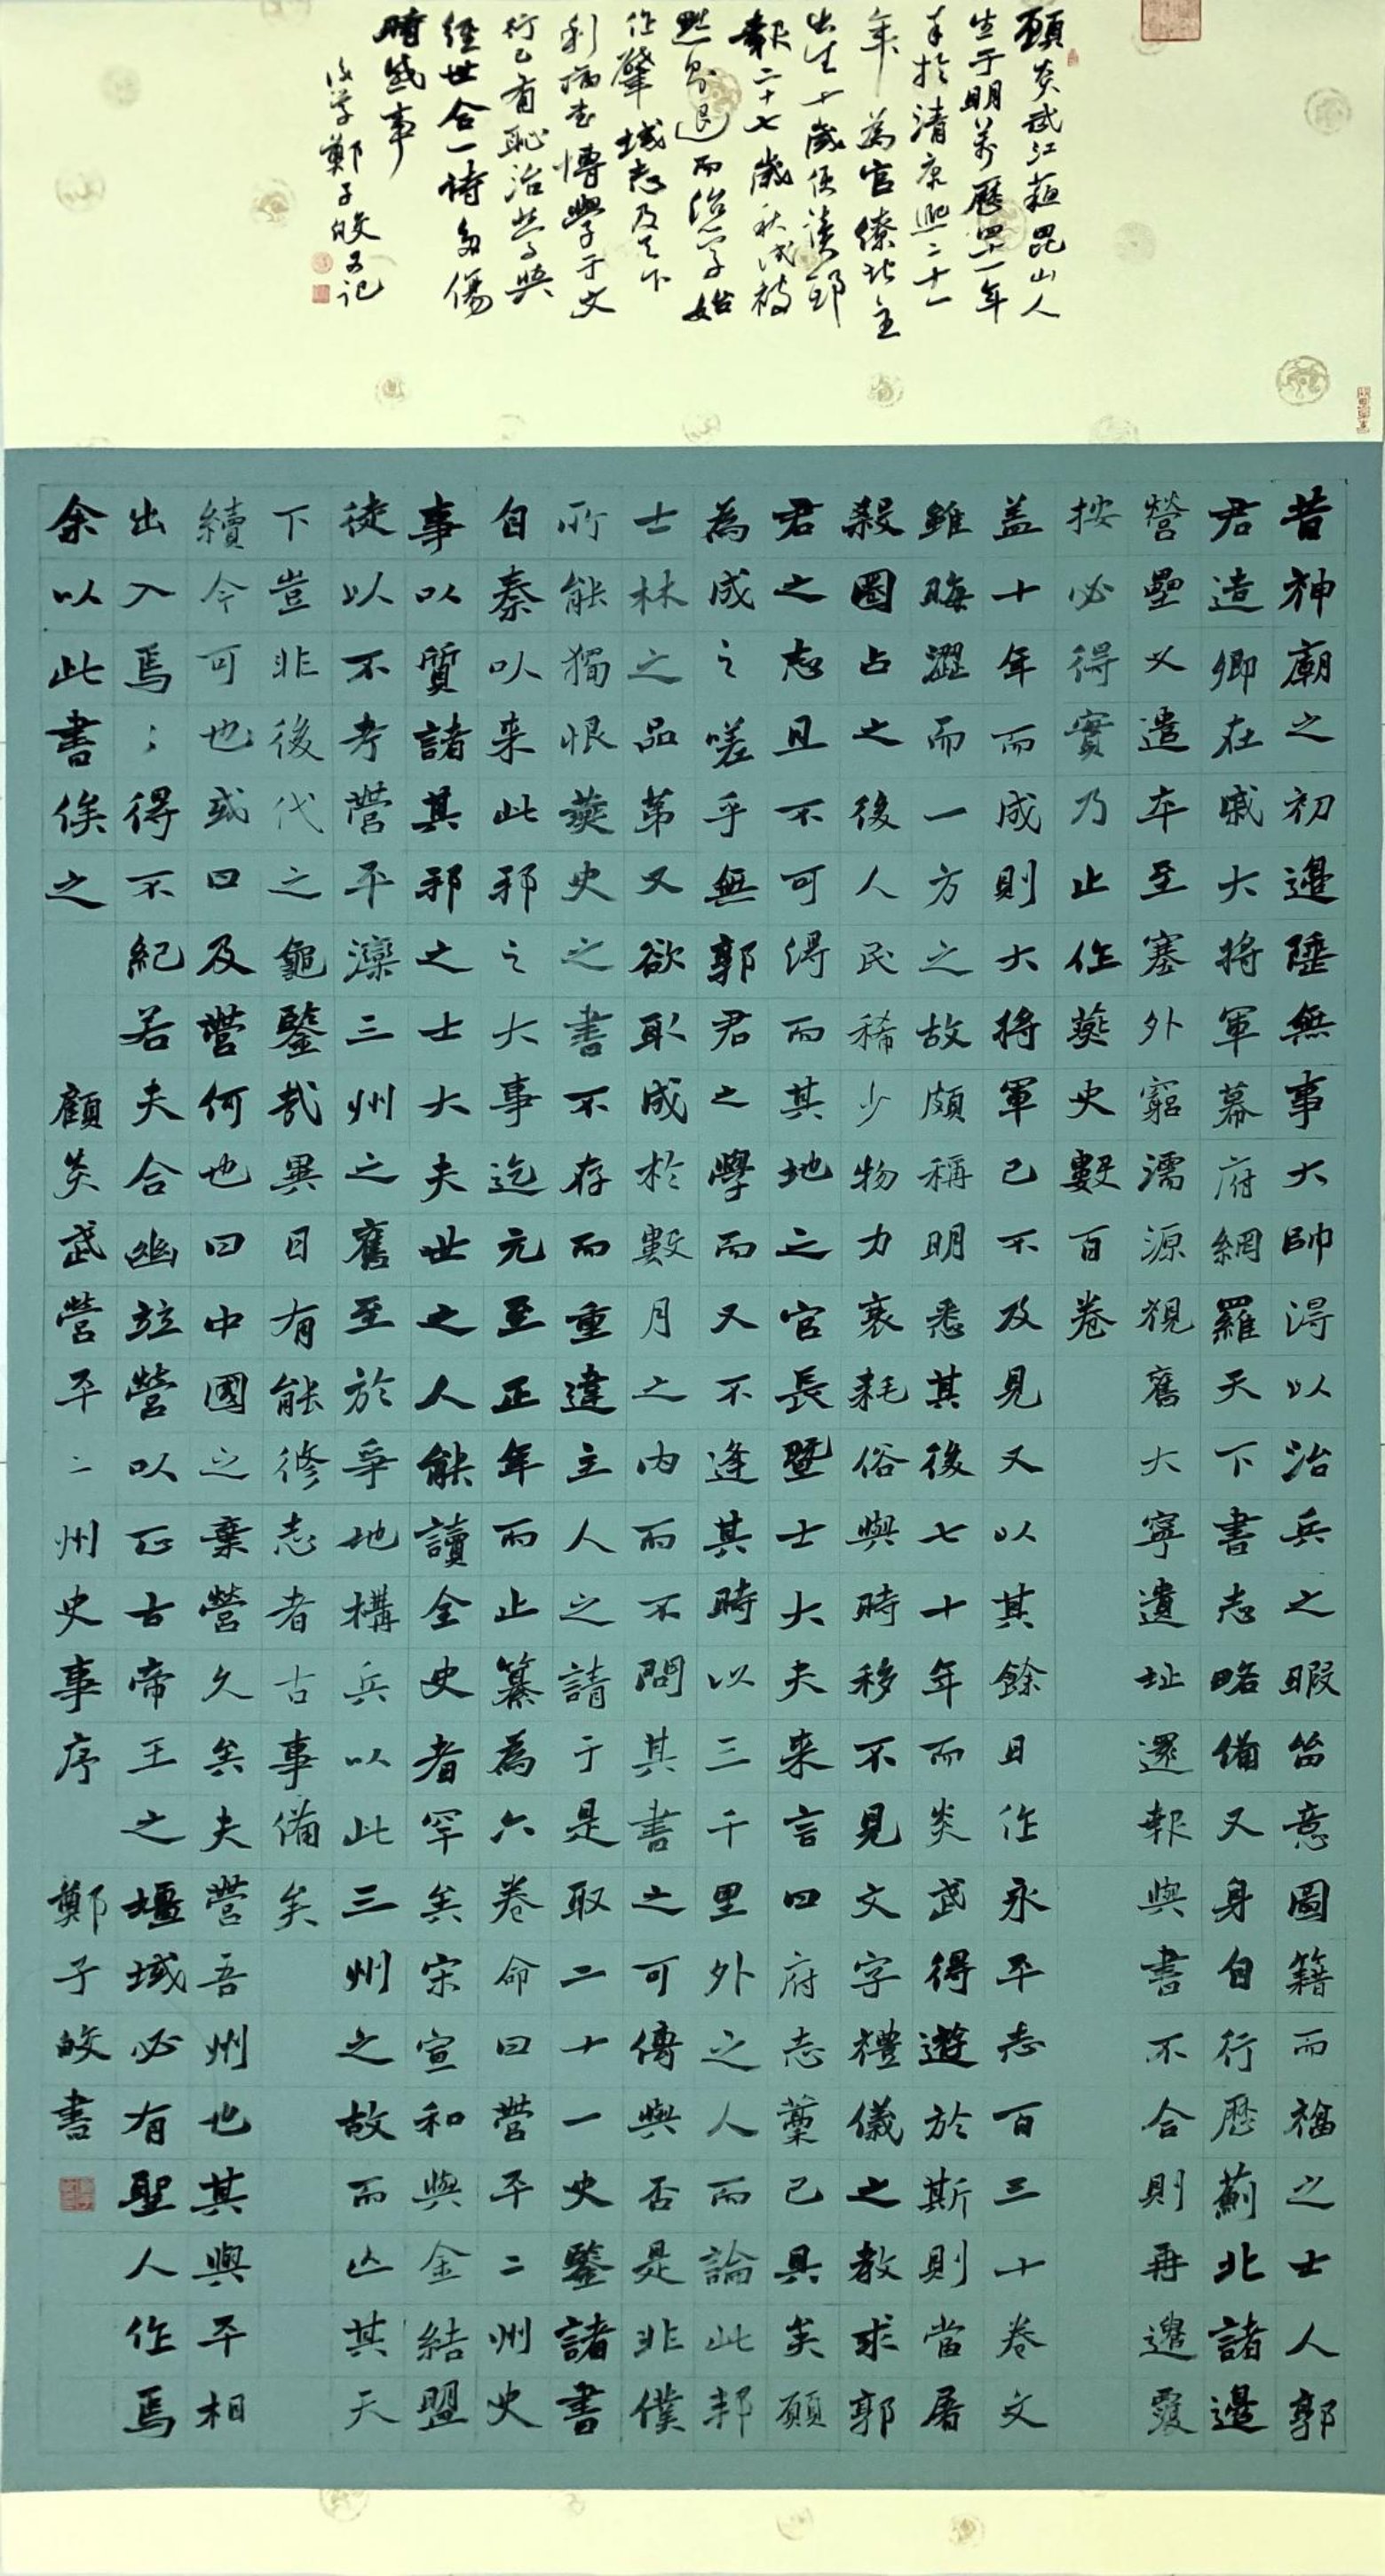 顧炎武江蘇昆山人
生于明萬曆四十一年
卒於清康熙二十一
年為官僚地主
出生十歲便讀邸
報二十七歲秋闈被
黜乃退而治學始
作肇域志及天下
利病書博學于文
行己有恥治學與
經世合一詩多傷
時感事
後學鄭子皎又記
昔神廟之初邊陲無事大帥得以治兵之暇留意圖籍而福之士人郭
君造卿在戚大將軍幕府網羅天下書志略備又身自行歷薊北諸邊
營壘又遣卒至塞外窮濡源視舊大寧遺址還報與書不合則再遣覆
按必得實乃止作燕史數百卷
蓋十年而成則大將軍已不及見又以其餘日作永平志百三十卷文
雖晦澀而一方之故頗稱明悉其後七十年而炎武得遊於斯則當屠
殺圈占之後人民稀少物力衰耗俗與時移不見文字禮儀之教求郭
君之志且不可得而其地之官長暨士大夫来言曰府志藁已具矣願
為成之嗟乎無郭君之學而又不逢其時以三千里外之人而論此邦
士林之品第又欲取成於數月之內而不問其書之可傳與否是非僕
所能獨恨燕史之書不存而重違主人之請于是取二十一史鑒諸書
自秦以来此邦之大事迄元至正年而止纂為六卷命曰營平二州史
事以質諸其邦之士大夫世之人能讀全史者罕矣宋宣和與金結盟
徒以不考營平灤三州之舊至於爭地構兵以此三州之故而亡其天
下豈非後代之龜鑒哉異日有能修志者古事備矣
續今可也或曰及營何也曰中國之棄營久矣夫營吾州也其與平相
出入焉〻得不紀若夫合幽竝營以正古帝王之壃域必有聖人作焉
余以此書俟之　顧炎武營平二州史事序　鄭子皎書